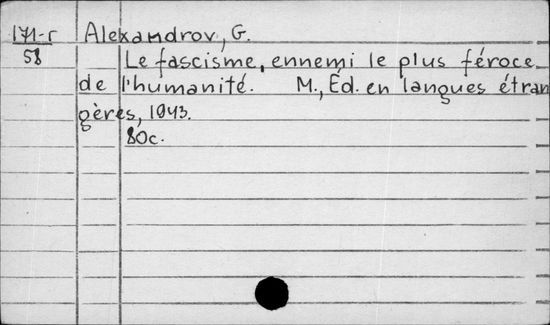 171-г Alexandrov, G.
58 Le fascisme, ennemi le plus féroce
de l'humanité. M., Éd. en langues étran
gères, 1943.
80c.